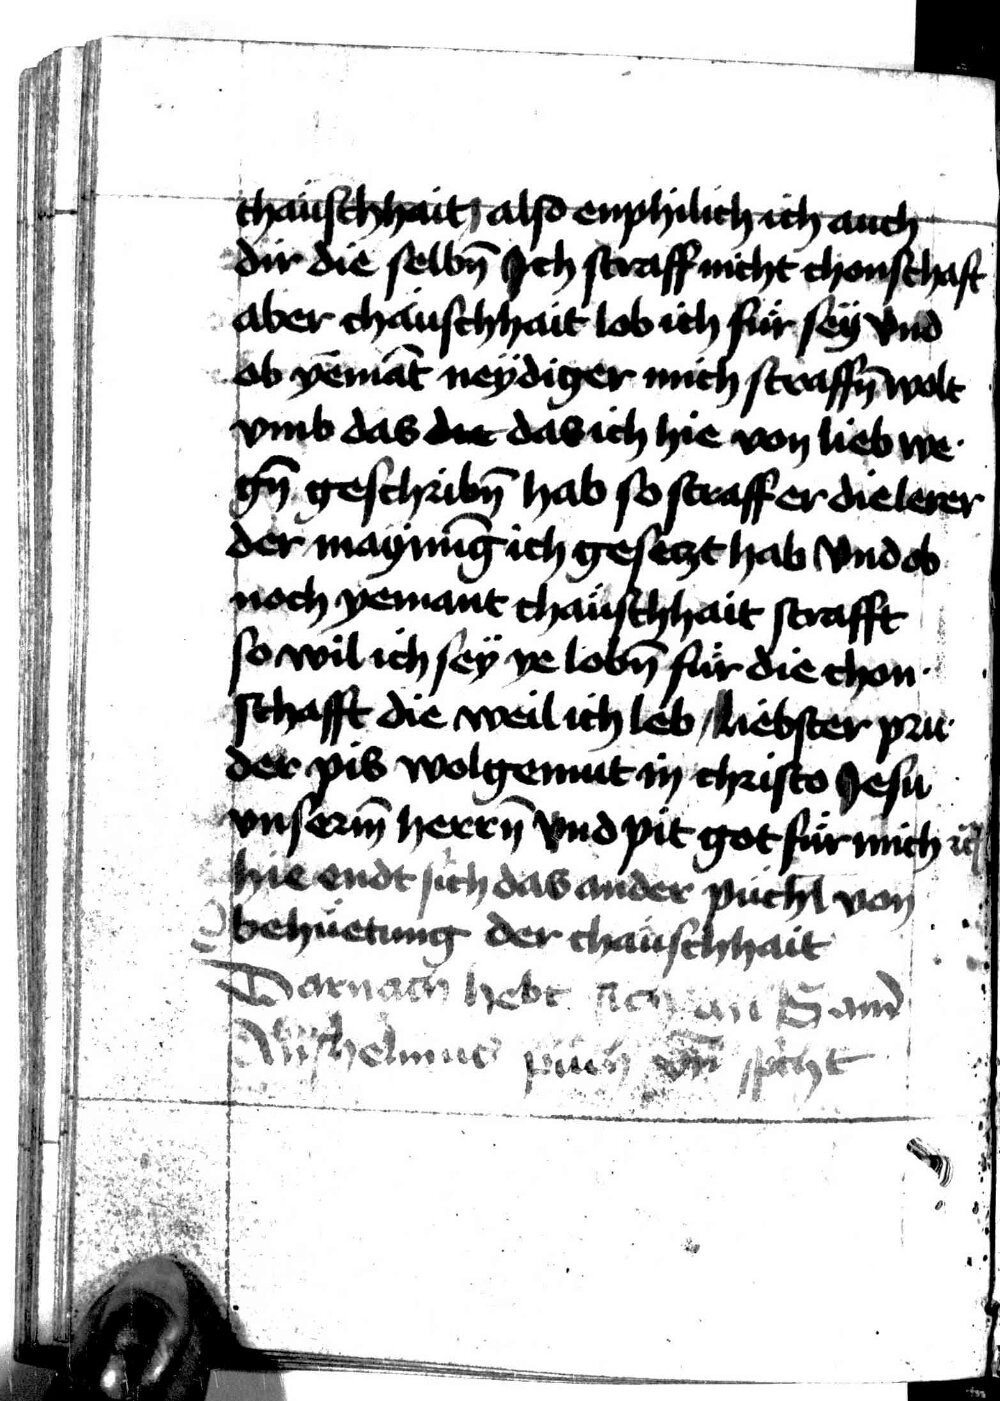 chaüschhait / also enphilich ich auch
dir die selbn̄ Ich straff nicht chonschaft
aber chaüschhait lob ich für seÿ vnd
ob yēmāt neÿdiger mich straffn̄ wolt
vmb das die das ich hie von lieb we·
gn̄ geschribn̄ hab so straff er die lerer
der maynūg ich gesetzt hab vnd ob
noch yemant chaüschhait strafft
so wil ich seÿ ye lobn̄ für die chon·
schafft die weil ich leb / liebster prü·
der pis wolgemut in christo Jesu
vnserm̄ herrn̄ vnd pit got für mich ic
hie endt sich das ander püchl von
behüetung der chaüschhait
Darnach hebt sich an Sand
püch vn̄